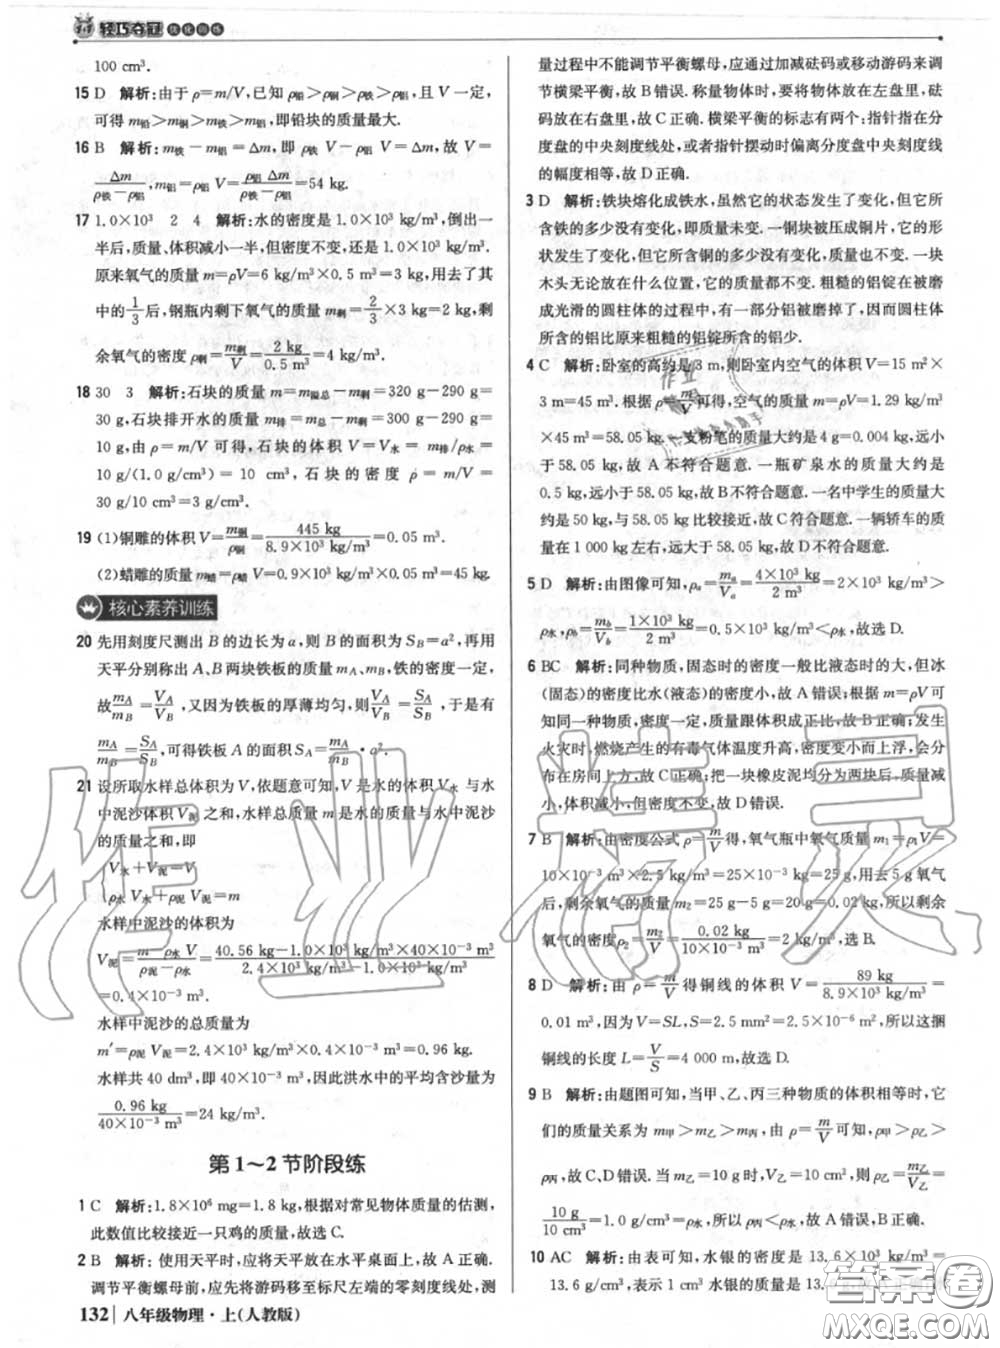 轻巧夺冠 优化训练
100 cm³.
15 D 解析:由于ρ=m/V,已知 ρ铅>ρ铜>ρ铁>ρ铝,且 V 一定,
可得 m铅>m铜>m铁>m铝,即铅块的质量最大.
16 B 解析:m铁-m铝=Δm,即 ρ铁V-ρ铝V=Δm,故 V=
Δm/(ρ铁-ρ铝),m铝=ρ铝V=ρ铝Δm/(ρ铁-ρ铝)=54 kg.
17 1.0×10³ 2 4 解析:水的密度是 1.0×10³ kg/m³,倒出一
半后,质量、体积减小一半,但密度不变,还是 1.0×10³ kg/m³.
原来氧气的质量 m=ρV=6 kg/m³×0.5 m³=3 kg,用去了其
中的1/3后,钢瓶内剩下氧气的质量 m剩=2/3×3 kg=2 kg,剩
余氧气的密度 ρ剩=m剩/V=2 kg/0.5 m³=4 kg/m³.
18 30 3 解析:石块的质量 m=m溢总-m剩=320 g-290 g=
30 g,石块排开水的质量 m排=m总-m剩=300 g-290 g=
10 g,由 ρ=m/V 可得,石块的体积 V=V水=m排/ρ水=
10 g/(1 g/cm³)=10 cm³,石块的密度 ρ=m/V=
30 g/10 cm³=3 g/cm³.
19 (1)铜雕的体积 V=m铜/ρ铜=445 kg/8.9×10³ kg/m³=0.05 m³.
(2)蜡雕的质量 m蜡=ρ蜡V=0.9×10³ kg/m³×0.05 m³=45 kg.
核心素养训练
20 先用刻度尺测出 B 的边长为 a,则 B 的面积为 S_B=a²,再用
天平分别称出 A、B 两块铁板的质量 m_A、m_B,铁的密度一定,
故m_A/m_B=V_A/V_B,又因为铁板的厚薄均匀,则V_A/V_B=S_A/S_B,于是
m_A/m_B=S_A/S_B,可得铁板 A 的面积 S_A=m_A/m_B·a².
21 设所取水样总体积为 V,依题意可知,V 是水的体积 V水 与水
中泥沙体积 V泥 之和,水样总质量 m 是水的质量与水中泥沙
的质量之和,即
{V水+V泥=V
ρ水V水+ρ泥V泥=m
水样中泥沙的体积为
V泥=(m-ρ水V)/(ρ泥-ρ水)=(40.56 kg-1.0×10³ kg/m³×40×10⁻³ m³)/(2.4×10³ kg/m³-1.0×10³ kg/m³)
=0.4×10⁻³ m³.
水样中泥沙的总质量为
m′=ρ泥V泥=2.4×10³ kg/m³×0.4×10⁻³ m³=0.96 kg.
水样共 40 dm³,即 40×10⁻³ m³,因此洪水中的平均含沙量为
0.96 kg/40×10⁻³ m³=24 kg/m³.
第 1~2 节阶段练
1 C 解析:1.8×10⁶ mg=1.8 kg,根据对常见物体质量的估测,
此数值比较接近一只鸡的质量,故选 C.
2 B 解析:使用天平时,应将天平放在水平桌面上,故 A 正确.
调节平衡螺母前,应先将游码移至标尺左端的零刻度线处,测
132 八年级物理·上(人教版)
量过程中不能调节平衡螺母,应通过加减砝码或移动游码来调
节横梁平衡,故 B 错误. 称量物体时,要将物体放在左盘里,砝
码放在右盘里,故 C 正确. 横梁平衡的标志有两个:指针指在分
度盘的中央刻度线处;或者指针摆动时偏离分度盘中央刻度线
的幅度相等,故 D 正确.
3 D 解析:铁块熔化成铁水,虽然它的状态发生了变化,但它所
含铁的多少没有变化,即质量未变. 一铜块被压成铜片,它的形
状发生了变化,但它所含铜的多少没有变化,质量不变. 一块
木头无论放在什么位置,它的质量都不变. 粗糙的铝锭被磨
成光滑的圆柱体的过程中,有一部分铝被磨掉了,因而圆柱体
所含的铝比原来粗糙的铝锭所含的铝少.
4 C 解析:卧室的高约是 3 m,则卧室内空气的体积 V=15 m²×
3 m=45 m³. 根据 ρ=m/V 再得,空气的质量 m=ρV=1.29 kg/
m³×45 m³=58.05 kg. 一支粉笔的质量大约是 4 g=0.004 kg,远小
于 58.05 kg,故 A 不符合题意. 一瓶矿泉水的质量大约是
0.5 kg,远小于 58.05 kg,故 B 不符合题意. 一名中学生的质量
大约是 50 kg,与 58.05 kg 比较接近,故 C 符合题意. 一辆轿车的质
量在 1 000 kg 左右,远大于 58.05 kg,故 D 不符合题意.
5 D 解析:由图像可知,ρa=ma/Va=4×10³ kg/2 m³=2×10³ kg/m³>
ρ水,ρb=mb/Vb=1×10³ kg/2 m³=0.5×10³ kg/m³<ρ水,故选 D.
6 BC 解析:同种物质,固态时的密度一般比液态时的大,但冰
(固态)的密度比水(液态)的密度小,故 A 错误;由 m=ρV 可
知同一种物质,密度一定,质量跟体积成正比,故 B 正确;发生
火灾时,燃烧产生的有毒气体温度升高,密度变小而上浮,会分
布在房间上方,故 C 正确;把一块橡皮泥均分为两块后,质量减
小,体积减小,但密度不变,故 D 错误.
7 B 解析:由密度公式 ρ=m/V得,氧气瓶中氧气质量 m₁=ρ₁V=
10×10⁻³ m³×2.5 kg/m³=25×10⁻³ kg=25 g,用去 5 g 氧气
后,剩余氧气的质量 m₂=25 g-5 g=20 g=0.02 kg,所以剩余
氧气的密度 ρ₂=m₂/V=0.02 kg/10×10⁻³ m³=2 kg/m³,选 B.
8 D 解析:由 ρ=m/V 得铜线的体积 V=m/ρ=89 kg/8.9×10³ kg/m³=
0.01 m³,因为 V=SL,S=2.5 mm²=2.5×10⁻⁶ m²,所以这捆
铜线的长度 L=V/S=4 000 m,故选 D.
9 B 解析:由题图可知,当甲、乙、丙三种物质的体积相等时,它
们的质量关系为 m甲>m乙>m丙,由 ρ=m/V可知,ρ甲>ρ乙>
ρ丙,故 A、C 错误;当 m乙=10 g 时,V乙=10 cm³,ρ乙=m乙/V乙=
10 g/10 cm³=1.0 g/cm³=ρ水,所以,ρ丙<ρ水,故 B 正确,D 错误.
10 AC 解析:由表可知,水银的密度是 13.6×10³ kg/m³=
13.6 g/cm³,表示 1 cm³ 水银的质量是
作业精灵
答案圈